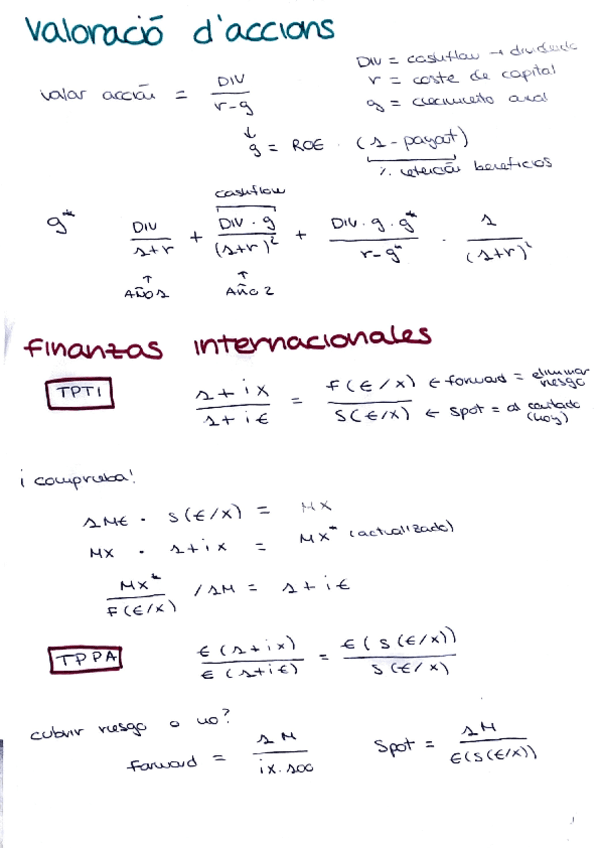 Valoració d'accions
DIV = cashflow → dividendo
r = coste de capital
g = crecimiento anual
valor acción = DIV / r-g
↓
g = ROE · (1 - payout)
% retención beneficios
cashflow
g* DIV / 1+r + DIV · g / (1+r)² + DIV · g · g* / r-g* · 1 / (1+r)²
↑ ↑
AÑO 1 AÑO 2
Finanzas internacionales
TPTI 1+ix / 1+i€ = F(€/x) ← forward = eliminar riesgo / S(€/x) ← spot = al contado (hoy)
¡comprueba!
1M€ · S(€/x) = MX
MX · 1+ix = MX* (actualizado)
MX* / F(€/x) /1M = 1+i€
TPPA € (1+ix) / € (1+i€) = €(S(€/x)) / S(€/x)
cubrir riesgo o no?
forward = 1M / ix.100 Spot = 1M / E(S(€/x))